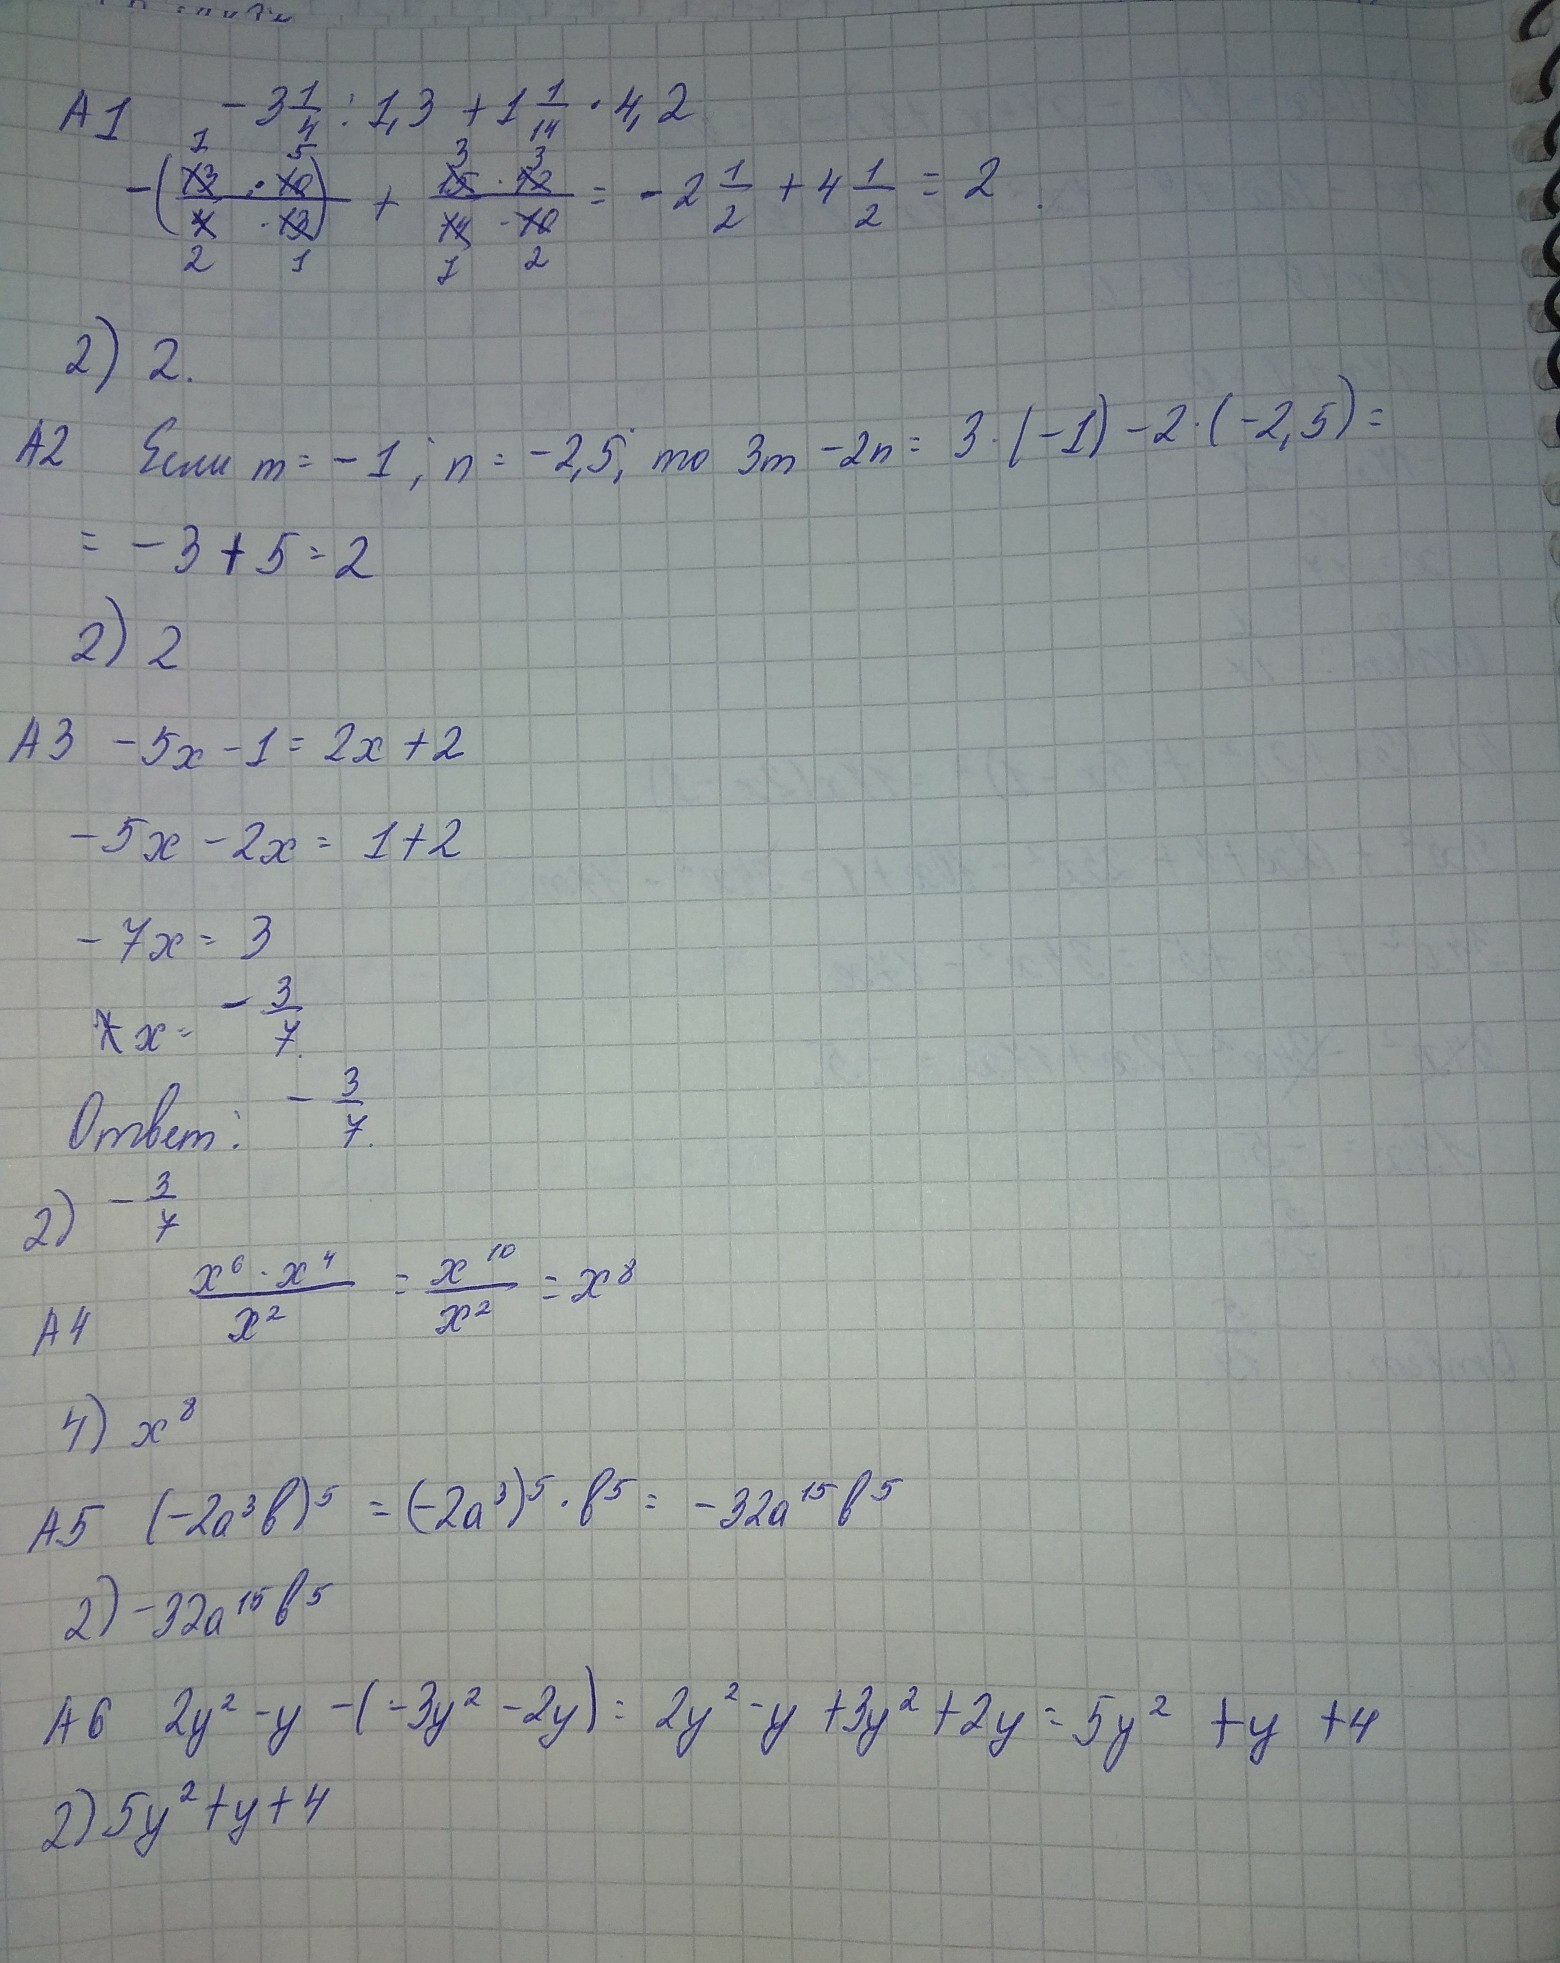 A1 -3 1/4 : 1,3 + 1 1/14 · 4,2
-(13 · 10 / 4 · 13) + 15 · 42 / 14 · 10 = -2 1/2 + 4 1/2 = 2.
2) 2.
A2 Если m = -1; n = -2,5; то 3m - 2n = 3·(-1) - 2·(-2,5) =
= -3 + 5 = 2
2) 2
A3 -5x - 1 = 2x + 2
-5x - 2x = 1 + 2
-7x = 3
x = - 3/7.
Ответ: - 3/7.
2) - 3/7
A4 x⁶ · x⁴ / x² = x¹⁰ / x² = x⁸
4) x⁸
A5 (-2a³b)⁵ = (-2a³)⁵ · b⁵ = -32a¹⁵b⁵
2) -32a¹⁵b⁵
A6 2y² - y - (-3y² - 2y) = 2y² - y + 3y² + 2y = 5y² + y + 4
2) 5y² + y + 4